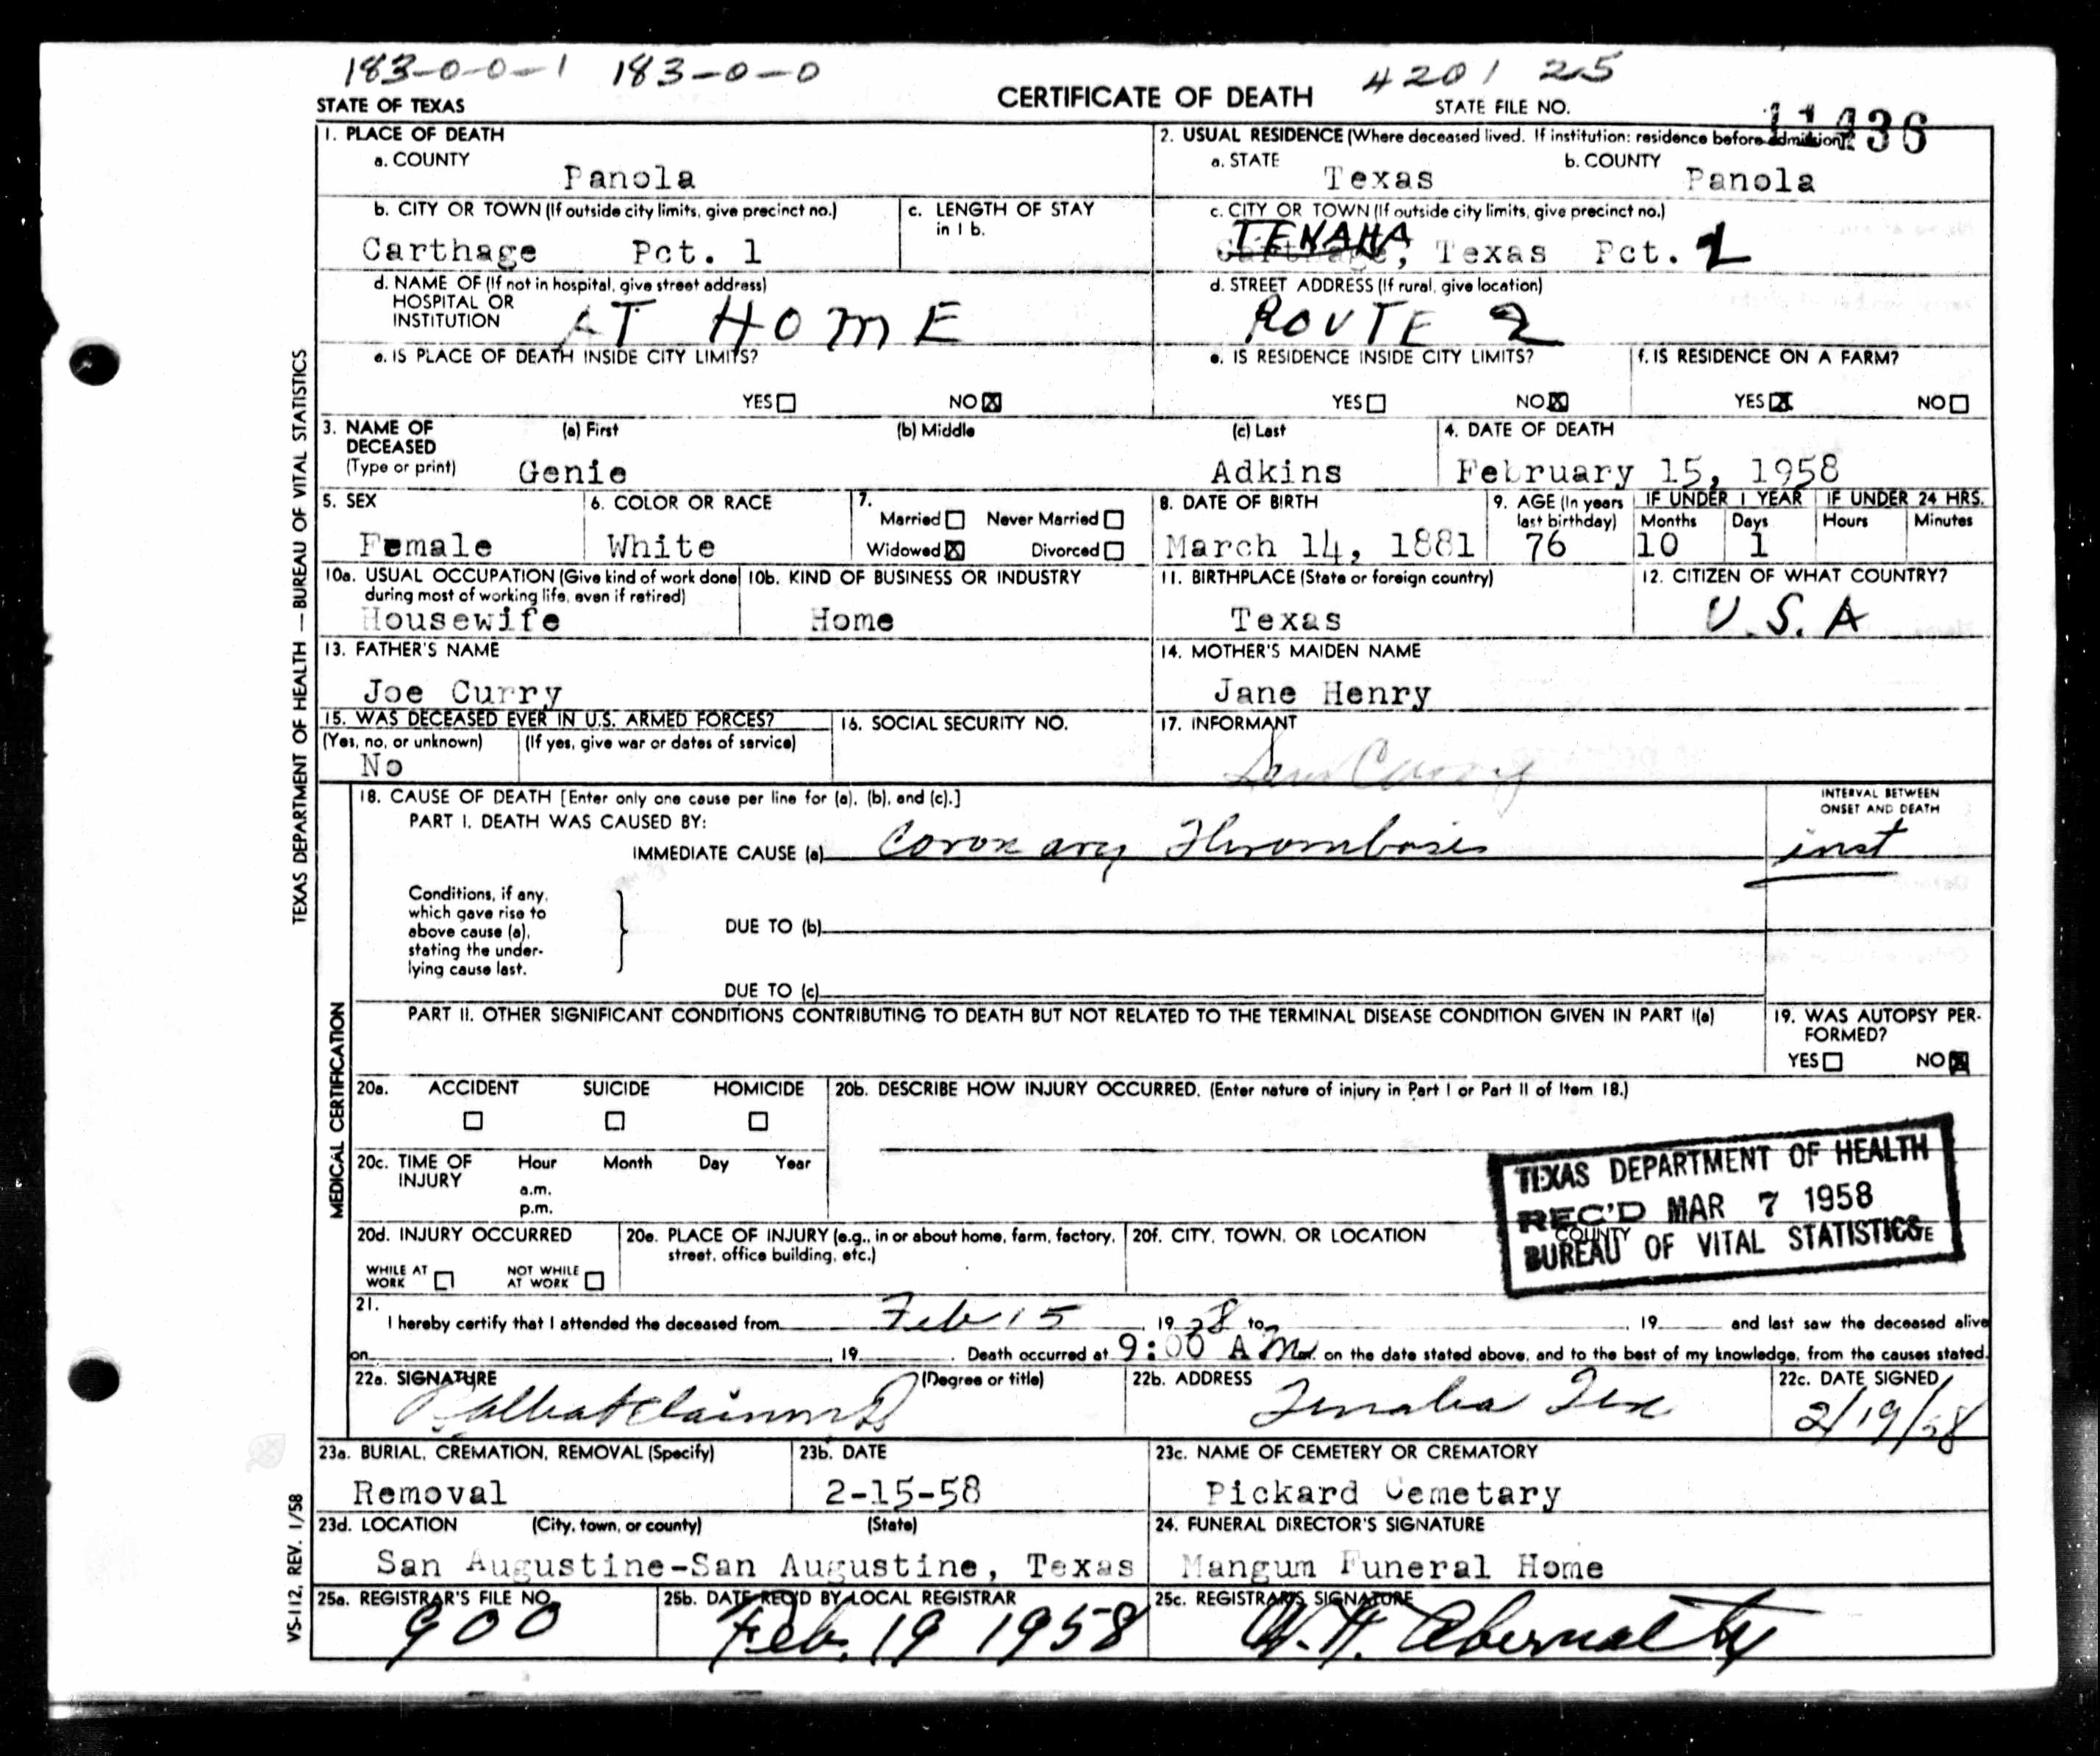 183-0-0-1 183-0-0 4201 25
STATE OF TEXAS CERTIFICATE OF DEATH STATE FILE NO.
1. PLACE OF DEATH
a. COUNTY
Panola
2. USUAL RESIDENCE (Where deceased lived. If institution: residence before admission)
a. STATE b. COUNTY
Texas Panola
b. CITY OR TOWN (If outside city limits, give precinct no.) c. LENGTH OF STAY
in 1 b.
Carthage Pct. 1
c. CITY OR TOWN (If outside city limits, give precinct no.)
TENAHA
Carthage, Texas Pct. 2
d. NAME OF (If not in hospital, give street address)
HOSPITAL OR
INSTITUTION AT HOME
d. STREET ADDRESS (If rural, give location)
ROUTE 2
e. IS PLACE OF DEATH INSIDE CITY LIMITS?
YES NO X
e. IS RESIDENCE INSIDE CITY LIMITS?
YES NO X
f. IS RESIDENCE ON A FARM?
YES X NO
3. NAME OF (a) First (b) Middle (c) Last
DECEASED
(Type or print) Genie Adkins
4. DATE OF DEATH
February 15, 1958
5. SEX
Female
6. COLOR OR RACE
White
7.
Married Never Married
Widowed X Divorced
8. DATE OF BIRTH
March 14, 1881
9. AGE (In years
last birthday)
76
IF UNDER 1 YEAR IF UNDER 24 HRS.
Months Days Hours Minutes
10 1
10a. USUAL OCCUPATION (Give kind of work done
during most of working life, even if retired)
Housewife
10b. KIND OF BUSINESS OR INDUSTRY
Home
11. BIRTHPLACE (State or foreign country)
Texas
12. CITIZEN OF WHAT COUNTRY?
U.S.A
13. FATHER'S NAME
Joe Curry
14. MOTHER'S MAIDEN NAME
Jane Henry
15. WAS DECEASED EVER IN U.S. ARMED FORCES?
(Yes, no, or unknown) (If yes, give war or dates of service)
No
16. SOCIAL SECURITY NO.
17. INFORMANT
18. CAUSE OF DEATH [Enter only one cause per line for (a), (b), and (c).]
PART I. DEATH WAS CAUSED BY:
IMMEDIATE CAUSE (a) Coronary Thrombosis
INTERVAL BETWEEN
ONSET AND DEATH
inst
Conditions, if any,
which gave rise to
above cause (a),
stating the under-
lying cause last.
DUE TO (b)
DUE TO (c)
PART II. OTHER SIGNIFICANT CONDITIONS CONTRIBUTING TO DEATH BUT NOT RELATED TO THE TERMINAL DISEASE CONDITION GIVEN IN PART I(a)
19. WAS AUTOPSY PER-
FORMED?
YES NO X
20a. ACCIDENT SUICIDE HOMICIDE
20b. DESCRIBE HOW INJURY OCCURRED. (Enter nature of injury in Part I or Part II of Item 18.)
20c. TIME OF Hour Month Day Year
INJURY a.m.
p.m.
TEXAS DEPARTMENT OF HEALTH
REC'D MAR 7 1958
BUREAU OF VITAL STATISTICS
20d. INJURY OCCURRED
WHILE AT
WORK
NOT WHILE
AT WORK
20e. PLACE OF INJURY (e.g., in or about home, farm, factory,
street, office building, etc.)
20f. CITY, TOWN, OR LOCATION
COUNTY
21.
I hereby certify that I attended the deceased from Feb 15, 1958 to , 19 and last saw the deceased alive
on , 19 . Death occurred at 9:00 A M. on the date stated above, and to the best of my knowledge, from the causes stated.
22a. SIGNATURE (Degree or title)
22b. ADDRESS
Tenaha Tex
22c. DATE SIGNED
2/19/58
23a. BURIAL, CREMATION, REMOVAL (Specify)
Removal
23b. DATE
2-15-58
23c. NAME OF CEMETERY OR CREMATORY
Pickard Cemetary
23d. LOCATION (City, town, or county) (State)
San Augustine-San Augustine, Texas
24. FUNERAL DIRECTOR'S SIGNATURE
Mangum Funeral Home
25a. REGISTRAR'S FILE NO.
900
25b. DATE REC'D BY LOCAL REGISTRAR
Feb. 19 1958
25c. REGISTRAR'S SIGNATURE
W.H. Abernathy
TEXAS DEPARTMENT OF HEALTH — BUREAU OF VITAL STATISTICS
MEDICAL CERTIFICATION
VS-112, REV. 1/58